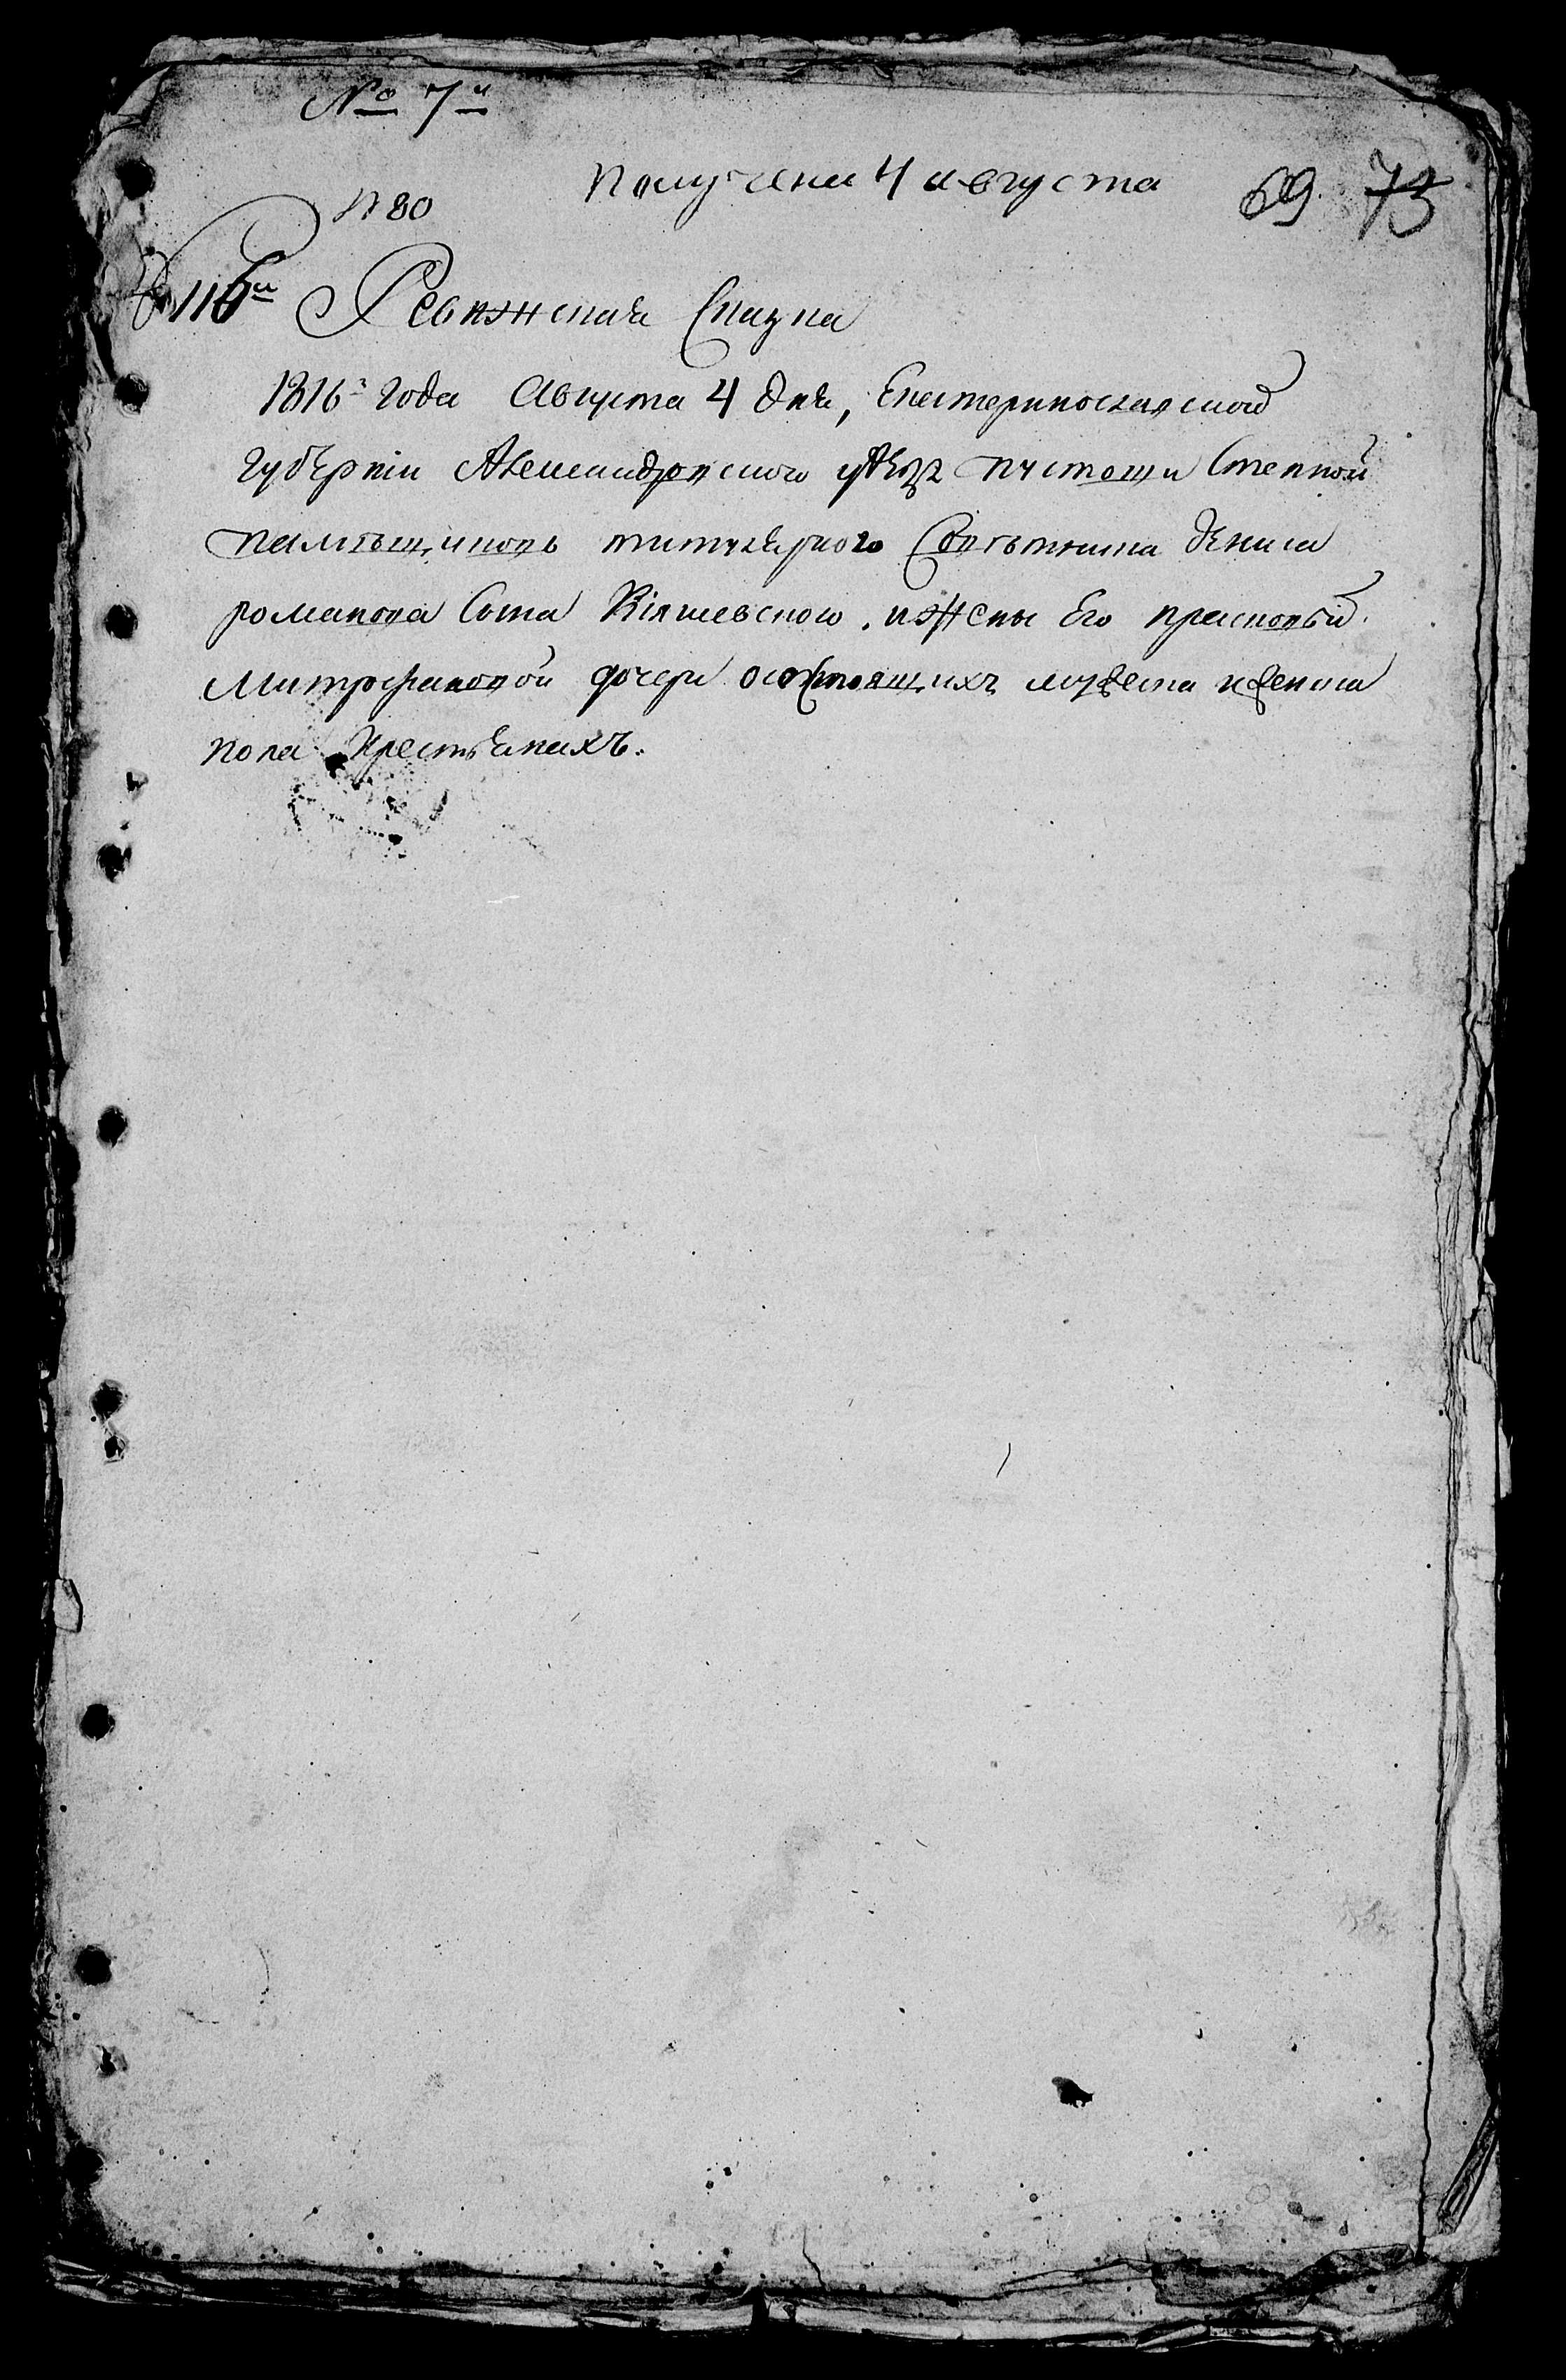 № 7й
Получена 4 августа
69. 73
N 80
116й Ревижская Скаска
1816го года Августа 4 дня, Екатеринославской
губернїи Александровского уезда пустоши Степной
памѣщиковъ титулярного Совѣтника дениса
романова Сына Кіяшевского. и жены Его Прасковьи
Митрофановой дочери осостоящихъ мужеска и женска
пола Крестьянахъ.